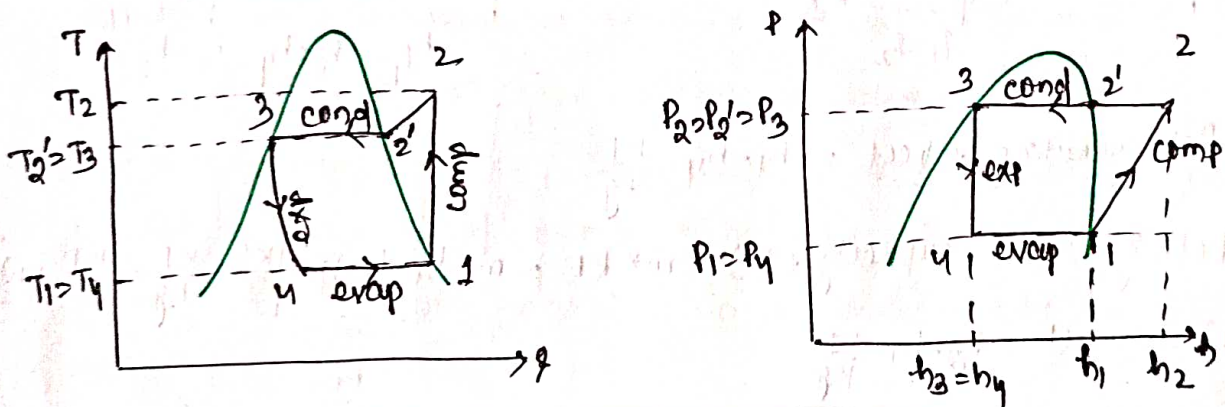 T
T2
T2'=T3
T1=T4
3
cond
2
2'
comp
exp
4
evap
1
P
P2=P2'=P3
P1=P4
3
cond
2'
2
exp
comp
4
evap
1
h3=h4
h1
h2
h